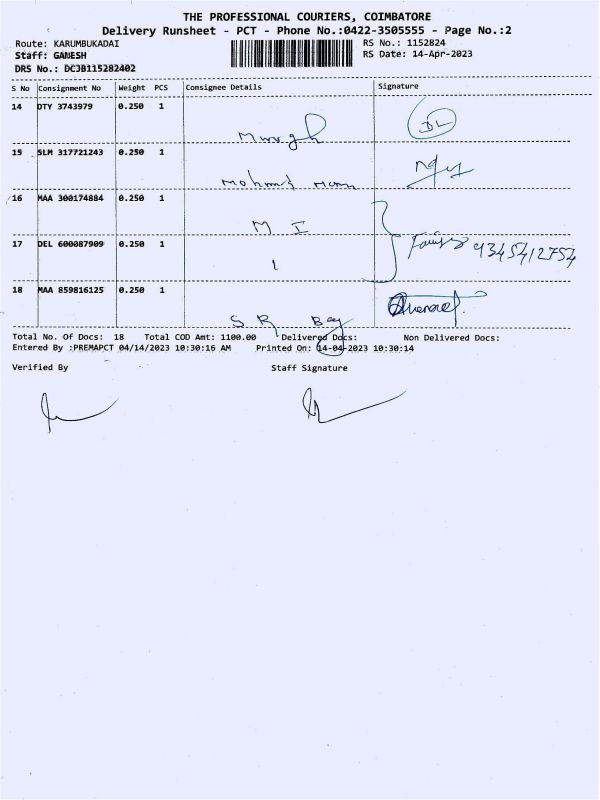 THE PROFESSIONAL COURIERS, COIMBATORE
Delivery Runsheet - PCT - Phone No.:0422-3505555 - Page No.:2
Route: KARUMBUKADAI RS No.: 1152824
Staff: GANESH RS Date: 14-Apr-2023
DRS No.: DCJB115282402
S No Consignment No Weight PCS Consignee Details Signature
14 DTY 3743979 0.250 1
DL
15 SLM 317721243 0.250 1
16 MAA 300174884 0.250 1
M I
17 DEL 600087909 0.250 1
9345412754
18 MAA 859816125 0.250 1
S R Bag
Total No. Of Docs: 18 Total COD Amt: 1100.00 Delivered Docs: Non Delivered Docs:
Entered By :PREMAPCT 04/14/2023 10:30:16 AM Printed On: 14-04-2023 10:30:14
Verified By Staff Signature